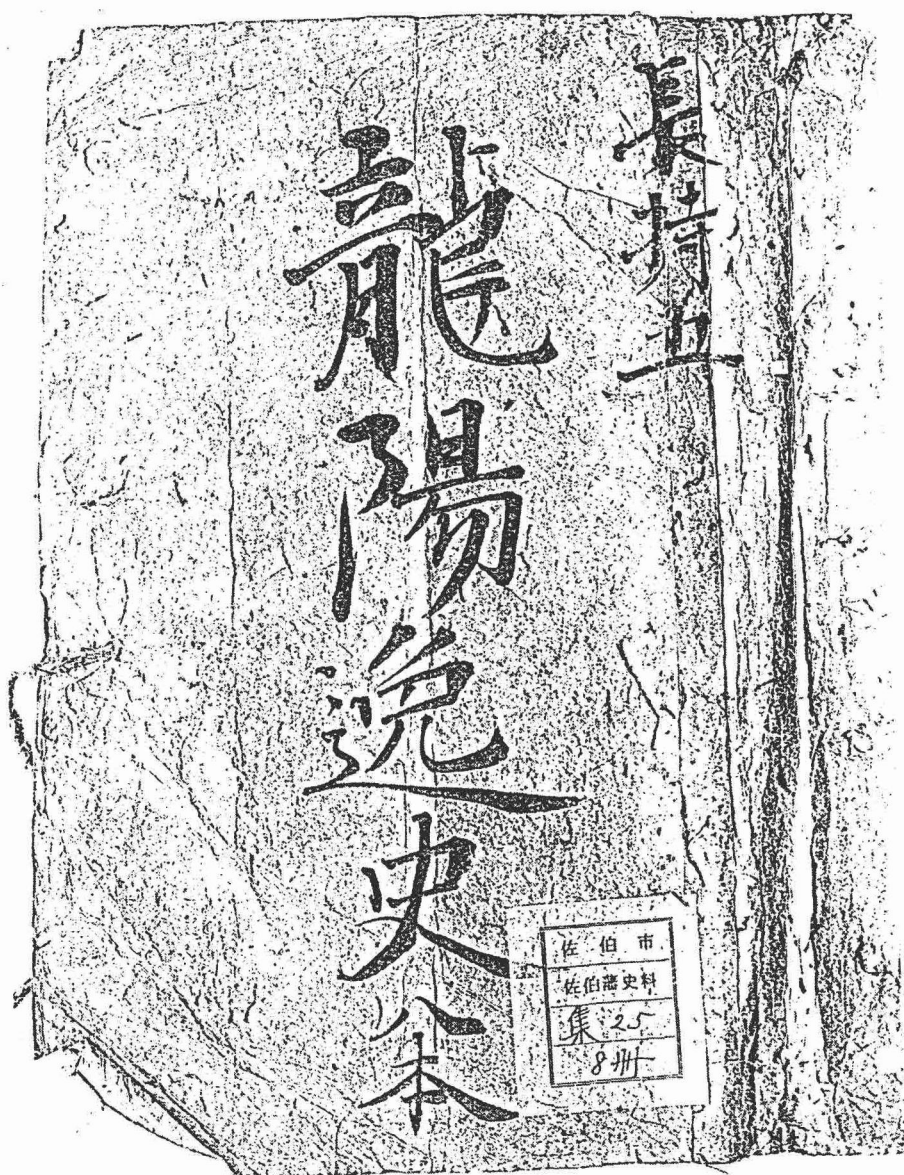 長持五
龍陽逸史八本
佐伯市
佐伯藩史料
集25
8冊